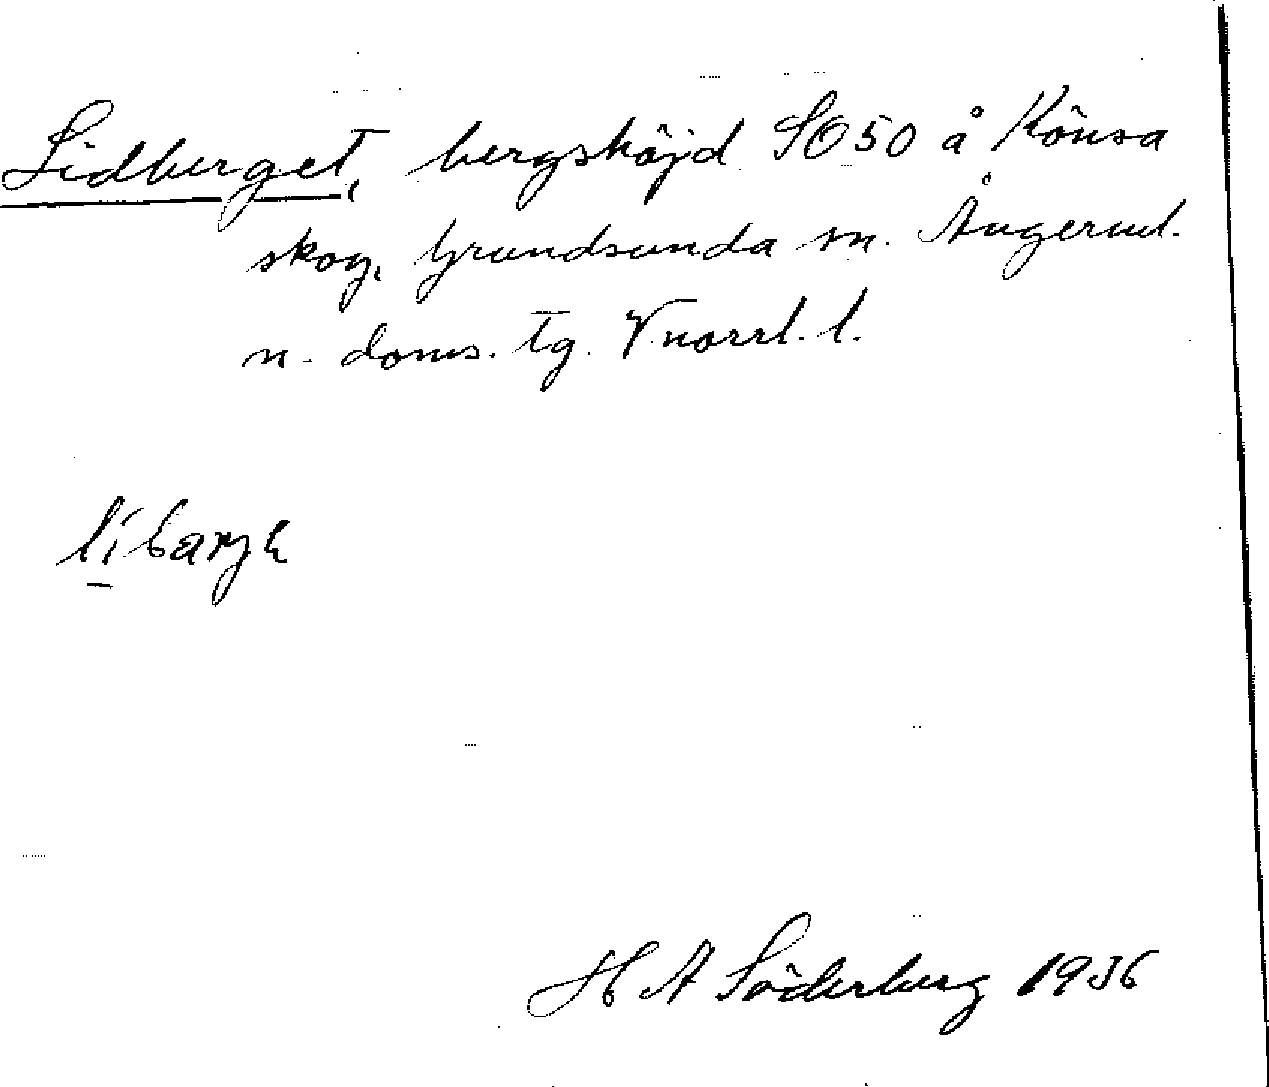 Lidberget, bergshöjd SO50 å Könsa
skog, Grundsunda sn. Ångerml.
n. doms. tg. Vnorrl. l.
líbarjɛ
H A Söderberg 1936